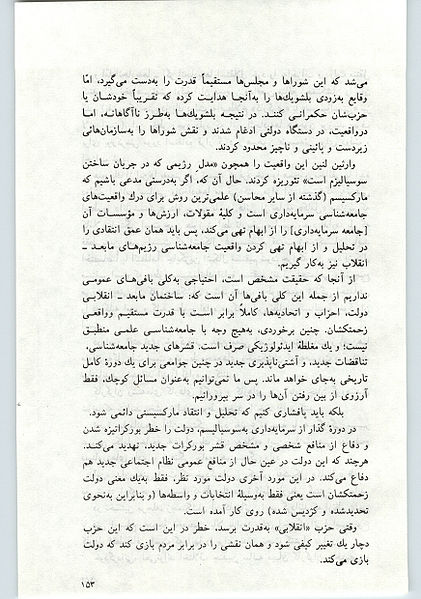 می‌شد که این شوراها و مجلس‌ها مستقیماً قدرت را به‌دست می‌گیرد، امّا
وقایع به‌زودی بلشویك‌ها را به‌آنجا هدایت کرده که تقریباً خودشان یا
حزب‌شان حکمرانی کنند. در نتیجه بلشویك‌ها به‌طرز ناآگاهانه، اما
درواقعیت، در دستگاه دولتی ادغام شدند و نقش شوراها را به‌سازمان‌هائی
زیردست و پائینی و ناچیز محدود کردند.
وارثین لنین این واقعیت را همچون «مدل رژیمی که در جریان ساختن
سوسیالیزم است» تئوریزه کردند. حال آن که، اگر به‌درستی مدعی باشیم که
مارکسیسم (گذشته از سایر محاسن) علمی‌ترین روش برای درك واقعیت‌های
جامعه‌شناسی سرمایه‌داری است و کلیهٔ مقولات، ارزش‌ها و مؤسسات آن
[جامعه سرمایه‌داری] را از ابهام تهی می‌کند، پس باید همان عمق انتقادی را
در تحلیل و از ابهام تهی کردن واقعیت جامعه‌شناسی رژیم‌های مابعد ـ
انقلاب نیز به‌کار گیریم.
از آنجا که حقیقت مشخص است، احتیاجی به‌کلی بافی‌های عمومی
نداریم از جمله این کلی بافی‌ها آن است که: ساختمان مابعد ـ انقلابی
دولت، احزاب و اتحادیه‌ها، کاملاً برابر است با قدرت مستقیم وواقعی
زحمتکشان. چنین برخوردی، به‌هیچ وجه با جامعه‌شناسی علمی منطبق
نیست؛ و یك مغلطهٔ ایدئولوژیکی صرف است. قشرهای جدید جامعه‌شناسی،
تناقضات جدید، و آشتی‌ناپذیری جدید در چنین جوامعی برای یك دورهٔ کامل
تاریخی به‌جای خواهد ماند. پس ما نمی‌توانیم به‌عنوان مسائل کوچك، فقط
آرزوی از بین رفتن آن‌ها را در سر بپرورانیم.
بلکه باید پافشاری کنیم که تحلیل و انتقاد مارکسیستی دائمی شود.
در دورهٔ گذار از سرمایه‌داری به‌سوسیالیسم، دولت را خطر بورکراتیزه شدن
و دفاع از منافع شخصی و مشخص قشر بورکرات جدید، تهدید می‌کند.
هرچند که این دولت در عین حال از منافع عمومی نظام اجتماعی جدید هم
دفاع می‌کند. در این مورد آخری دولت مورد نظر، فقط به‌یك معنی دولت
زحمتکشان است یعنی فقط به‌وسیلهٔ انتخابات و واسطه‌ها (و بنابراین به‌نحوی
تحدیدشده و کژدیس شده) روی کار آمده است.
وقتی حزب «انقلابی» به‌قدرت برسد، خطر در این است که این حزب
دچار یك تغییر کیفی شود و همان نقشی را در برابر مردم بازی کند که دولت
بازی می‌کند.
۱۵۳